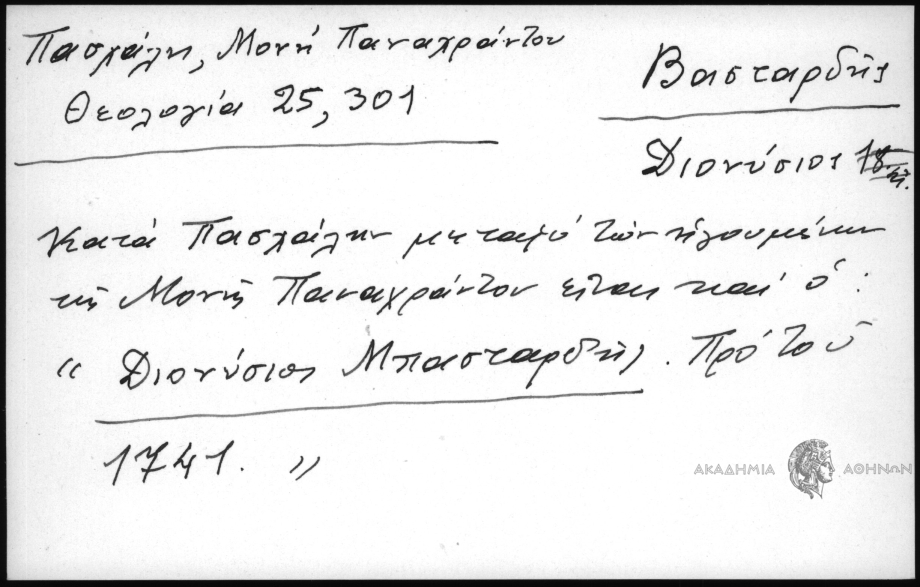 Πασχάλη, Μονή Παναχράντου
Θεολογία 25, 301
Βασταρδής
Διονύσιος
Κατά Πασχάλην μεταξύ των ηγουμένων
της Μονής Παναχράντου είναι και ό :
“ Διονύσιος Μπασταρδής. Πρό τού
1741. ”
ΑΚΑΔΗΜΙΑ ΑΘΗΝΩΝ